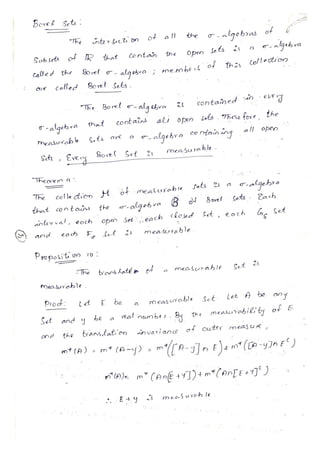 Borel Sets:
The intersection of all the σ-algebras of
Subsets of ℝ that contain the open sets is a σ-algebra
called the Borel σ-algebra ; members of this collection
are called Borel Sets.
The Borel σ-algebra is contained in every
σ-algebra that contains all open sets Therefore, the
measurable sets are a σ-algebra containing all open
Sets, Every Borel Set is measurable.
Theorem 9:
The collection M of measurable sets is a σ-algebra
that contains the σ-algebra B of Borel sets. Each
interval, each open set, each closed set, each Gδ set
and each Fσ set is measurable
Proposition 10:
The translate of a measurable set is
measurable.
Proof: Let E be a measurable set Let A be any
Set and y be a real number. By the measurability of E
and the translation invariance of outer measure,
m*(A) = m*(A-y) = m*([A-y]∩E) + m*([A-y]∩E^c)
m*(A) = m*(A∩[E+y]) + m*(A∩[E+y]^c)
∴ E+y is measurable